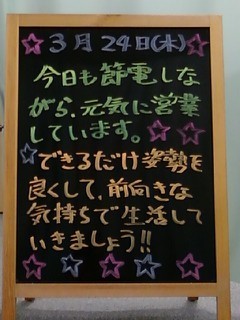 ☆3月24日(木)☆
今日も節電しな
がら、元気に営業
しています。☆☆
☆できるだけ姿勢を
良くして、前向きな
気持ちで生活して
いきましょう!!